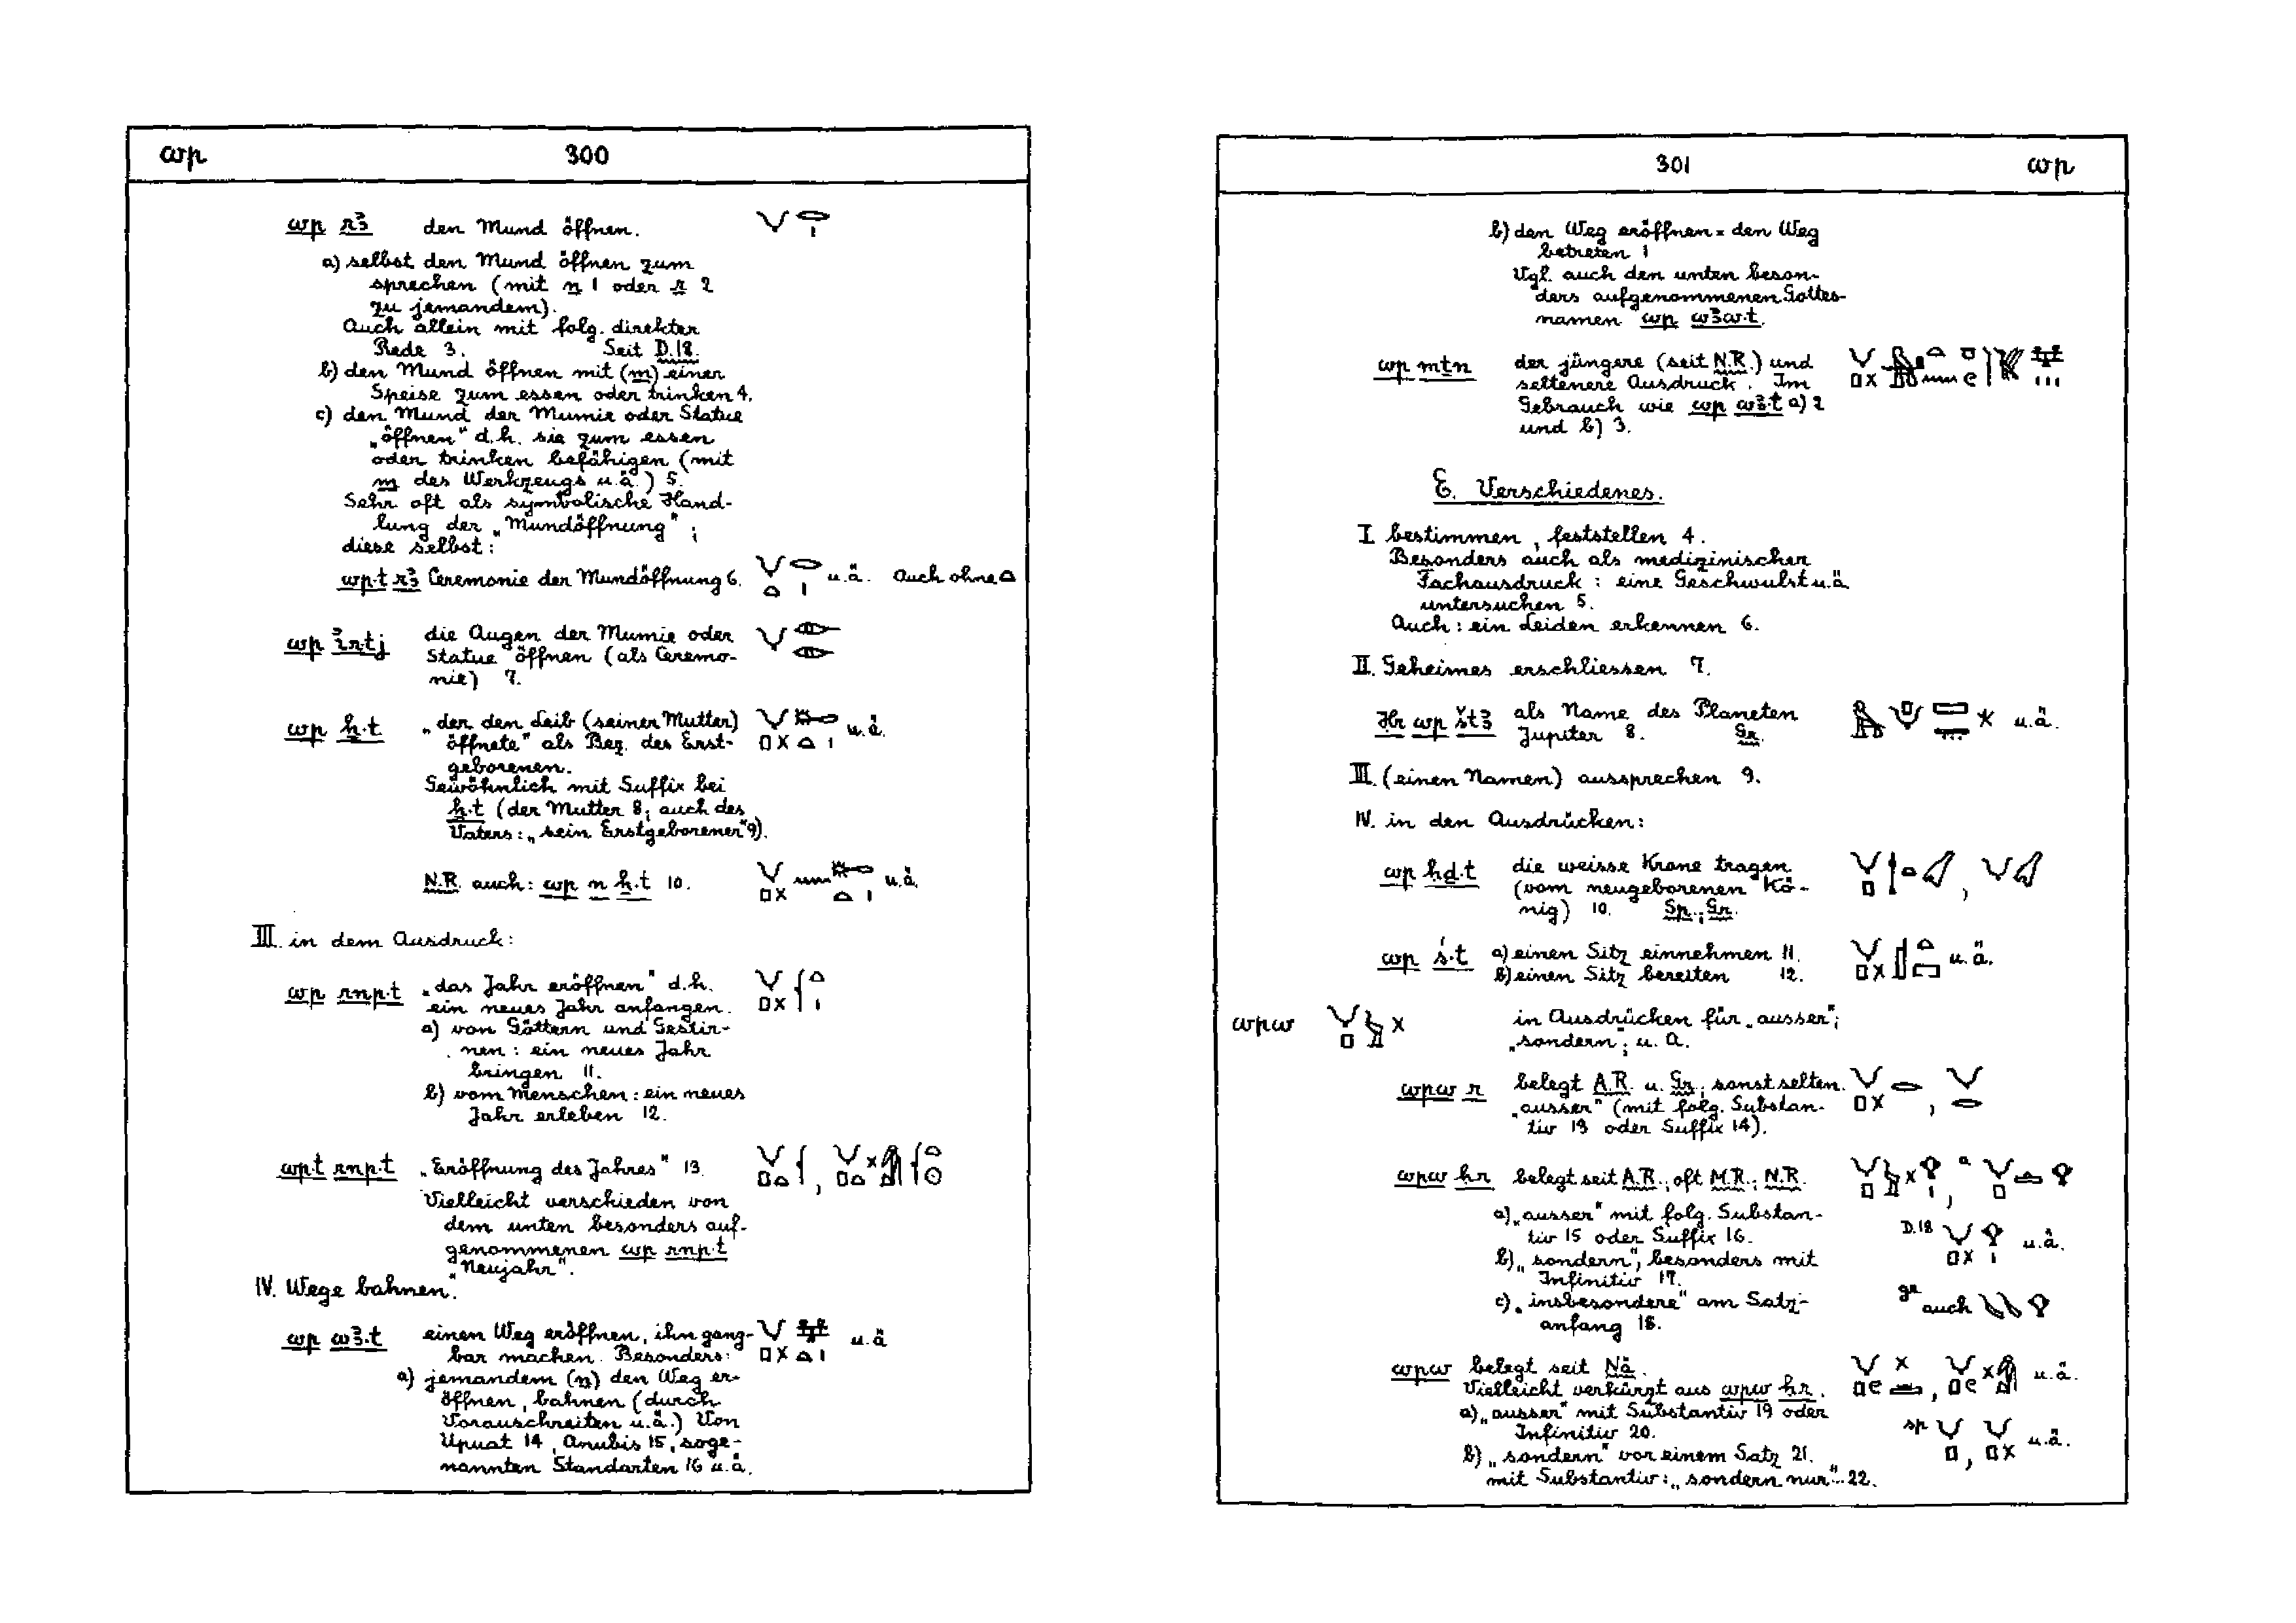 wp 300
wp rꜣ den Mund öffnen.
a) selbst den Mund öffnen zum
sprechen (mit n 1 oder r 2
zu jemandem).
Auch allein mit folg. direkter
Rede 3. Seit D.18.
b) den Mund öffnen mit (m) einer
Speise zum essen oder trinken 4.
c) den Mund der Mumie oder Statue
„öffnen" d.h. sie zum essen
oder trinken befähigen (mit
m des Werkzeugs u.ä.) 5.
Sehr oft als symbolische Hand-
lung der „Mundöffnung";
diese selbst:
wp.t rꜣ Ceremonie der Mundöffnung 6. u.ä. Auch ohne
wp ꞽr.tj die Augen der Mumie oder
Statue öffnen (als Ceremo-
nie) 7.
wp ẖ.t „der den Leib (seiner Mutter)
öffnete" als Bez. des Erst- u.ä.
geborenen.
Gewöhnlich mit Suffix bei
ẖ.t (der Mutter 8; auch des
Vaters: „sein Erstgeborener" 9).
N.R. auch: wp n ẖ.t 10. u.ä.
III. in dem Ausdruck:
wp rnp.t „das Jahr eröffnen" d.h.
ein neues Jahr anfangen.
a) von Göttern und Gestir-
nen: ein neues Jahr
bringen 11.
b) vom Menschen: ein neues
Jahr erleben 12.
wp.t rnp.t „Eröffnung des Jahres" 13.
Vielleicht verschieden von
dem unten besonders auf-
genommenen wp rnp.t
„Neujahr".
IV. Wege bahnen.
wp wꜣ.t einen Weg eröffnen, ihn gang- u.ä
bar machen. Besonders:
a) jemandem (n) den Weg er-
öffnen, bahnen (durch
Vorauschreiten u.ä.) Von
Upuat 14, Anubis 15, soge-
nannten Standarten 16 u.ä.
301 wp
b) den Weg eröffnen = den Weg
betreten 1
Vgl. auch den unten beson-
ders aufgenommenen Gottes-
namen wp wꜣw.t.
wp mṯn der jüngere (seit N.R.) und
seltenere Ausdruck. Im
Gebrauch wie wp wꜣ.t a) 2
und b) 3.
E. Verschiedenes.
I bestimmen, feststellen 4.
Besonders auch als medizinischer
Fachausdruck: eine Geschwulst u.ä.
untersuchen 5.
Auch: ein Leiden erkennen 6.
II. Geheimes erschliessen 7.
Ḥr wp štꜣ als Name des Planeten u.ä.
Jupiter 8. Gr.
III. (einen Namen) aussprechen 9.
IV. in den Ausdrücken:
wp ḥḏ.t die weisse Krone tragen
(vom neugeborenen Kö-
nig) 10. Sp.; Gr.
wp ś.t a) einen Sitz einnehmen 11. u.ä.
b) einen Sitz bereiten 12.
wpw in Ausdrücken für „ausser";
„sondern"; u.a.
wpw r belegt A.R. u. Gr.; sonst selten.
„ausser" (mit folg. Substan-
tiv 13 oder Suffix 14).
wpw ḥr belegt seit A.R.; oft M.R.; N.R.
a) „ausser" mit folg. Substan-
tiv 15 oder Suffix 16. D.18 u.ä.
b) „sondern", besonders mit
Infinitiv 17.
c) „insbesondere" am Satz- gr auch
anfang 18.
wpw belegt seit Nä.
Vielleicht verkürzt aus wpw ḥr. u.ä.
a) „ausser" mit Substantiv 19 oder
Infinitiv 20. sp u.ä.
b) „sondern" vor einem Satz 21.
mit Substantiv: „sondern nur" 22.